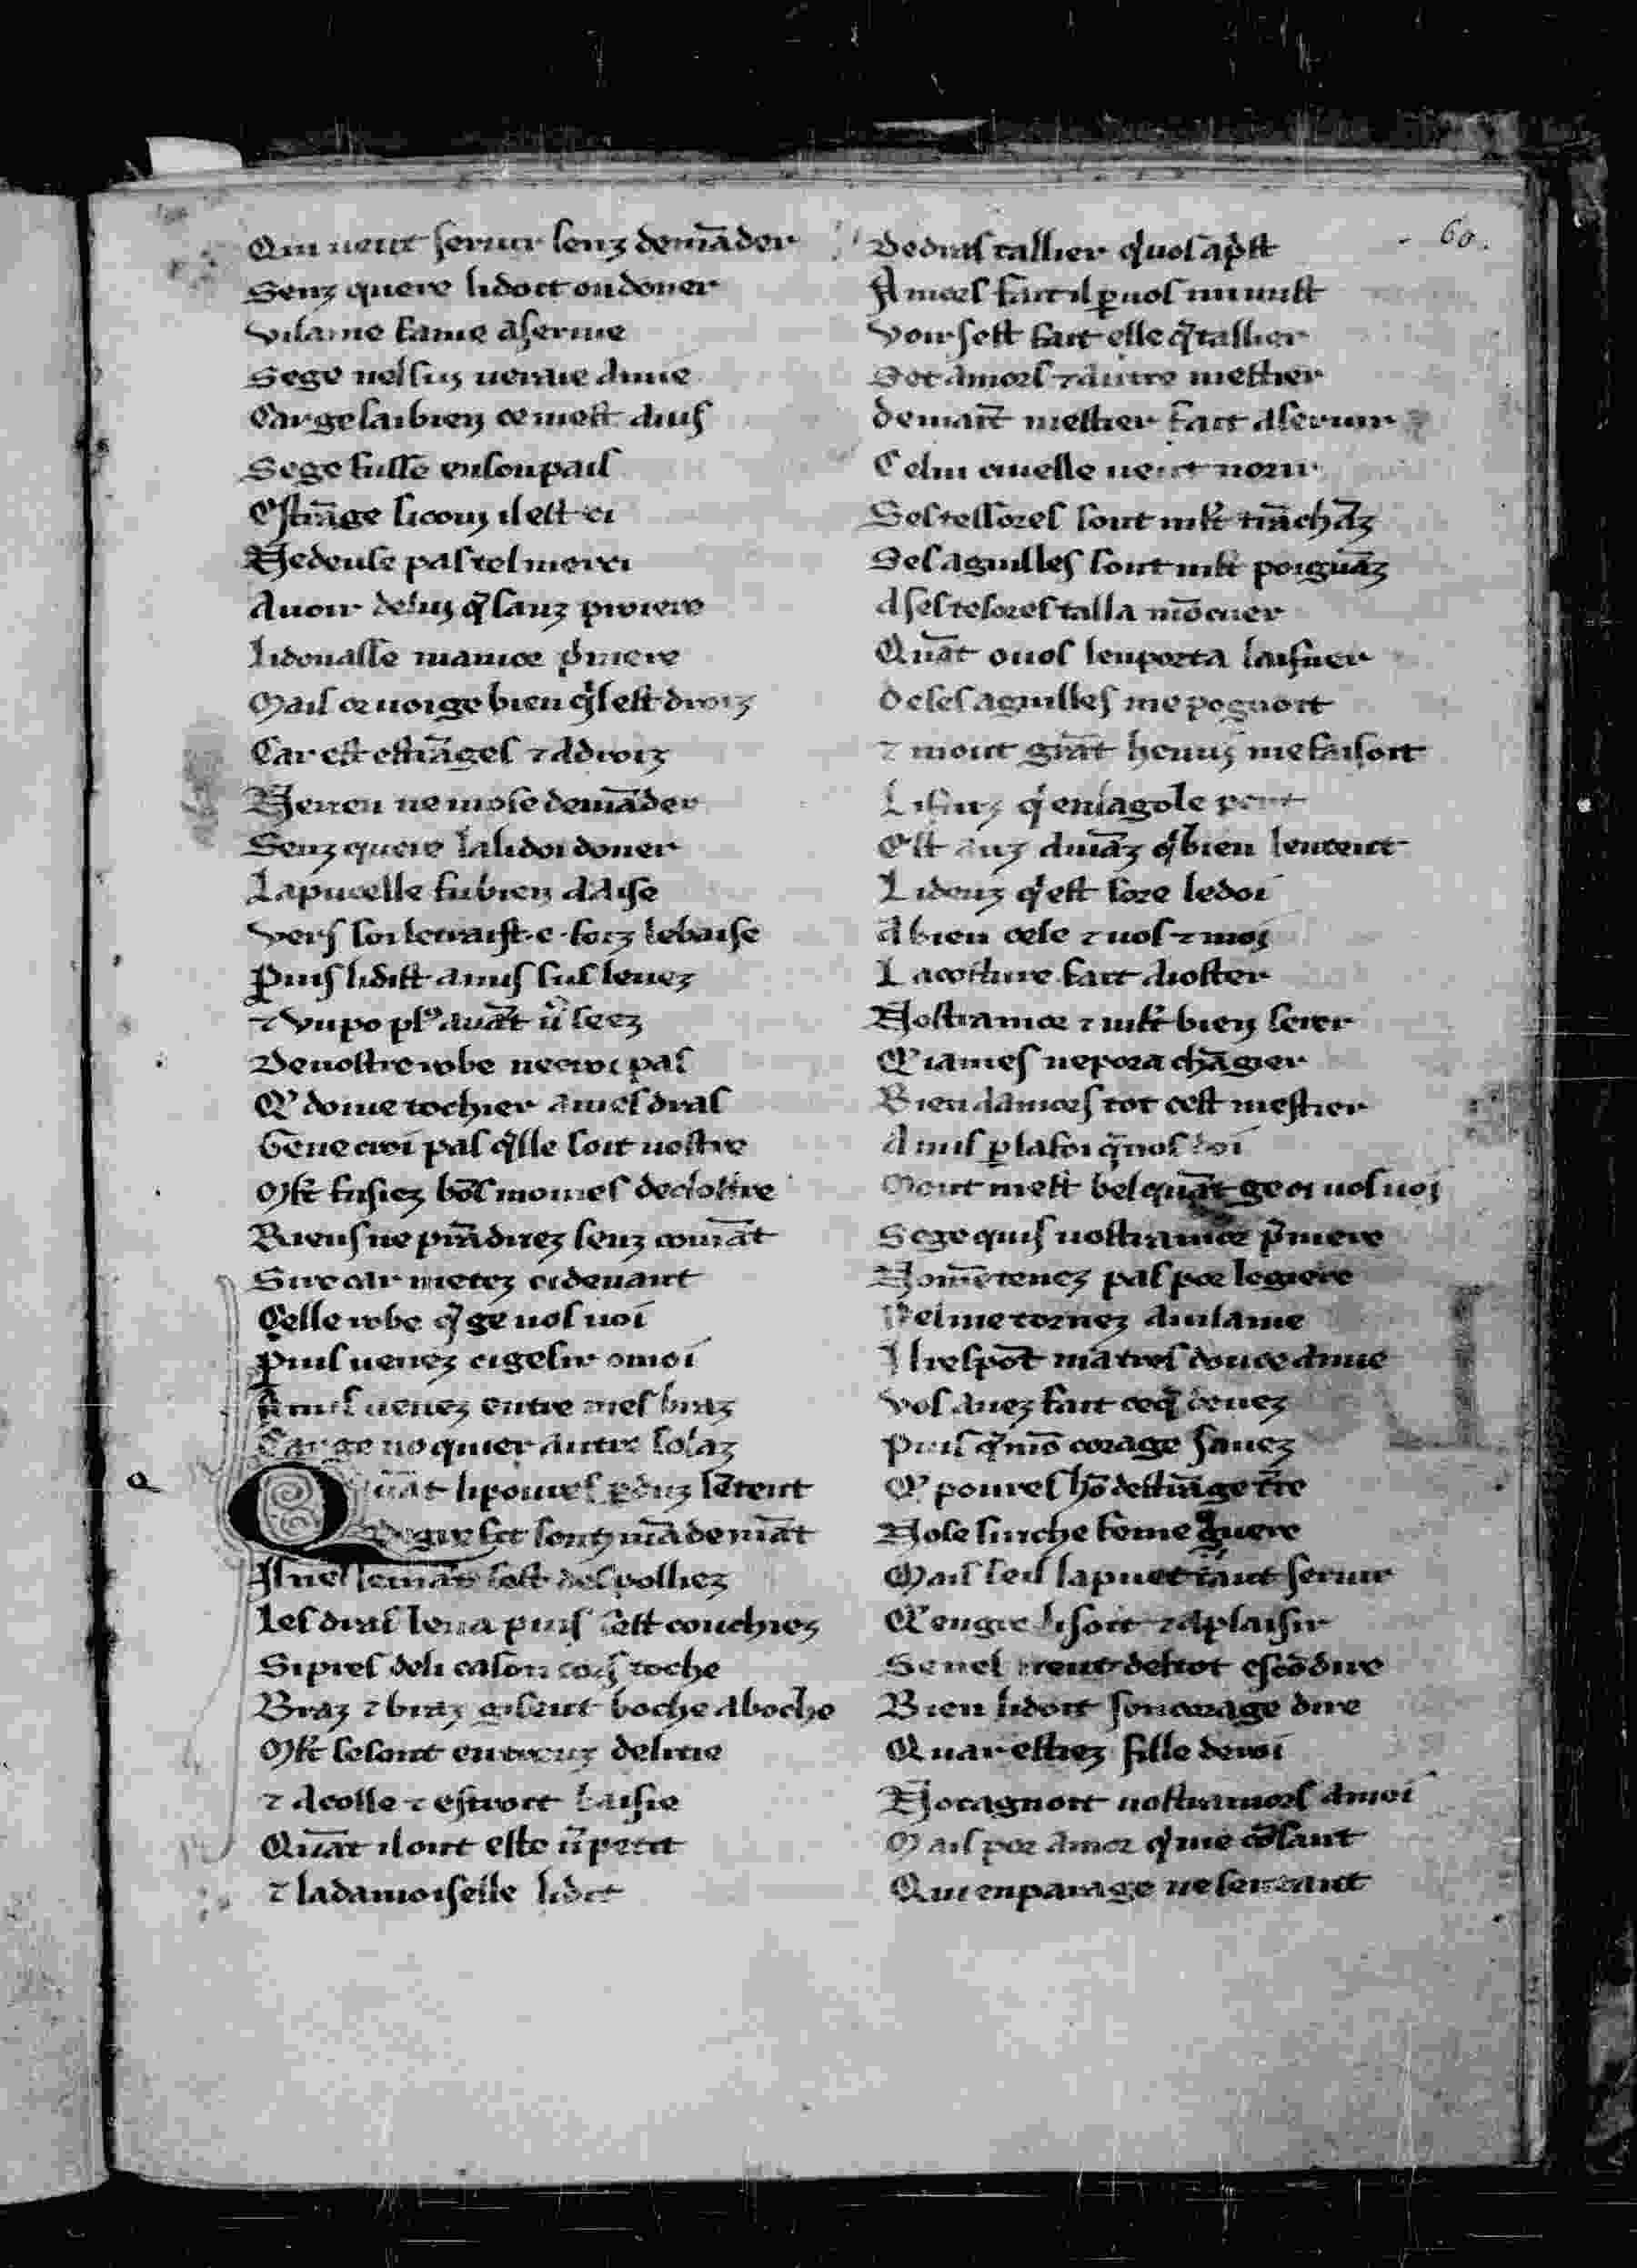 60.
Qui ueut seruir senz demāder
Senz quere li doit on doner
Vilaine fame a seruie
Se ge nel sui ueraie amie
Car ge sai bien ce mest auis
Se ge fusse en son pais
Estrāge si com il est ci
Ne deusse pas tel merci
Auoir de lui q̄ sanz proiere
Li donasse mamor p̄miere
Mais ce uoi ge bien q̄l est droiz
Car est estrāges ⁊ adroiz
Ne rien ne mose demāder
Senz quere la li doi doner
La pucelle fu bien a aise
Vers soi le traist .c. foiz le baise
Puis li dist amis sus leuez
⁊ vn po plꝰ auāt u̓ seez
De uostre robe ne croi pas
Q' doiue tochier a mes dras
Ge ne croi pas q̄lle soit uostre
Mlt̄ fusiez bōs moines de cloistre
Riens ne prādirez senz comāt
Sire car metez ci deuant
Celle robe q̄ ge uos uoi
Puis uenez ci gesir o moi
Amis uenez entre mes braz
Car ge no quier autre solaz
Quāt li poures ꝑduz lētent
Il nel semāt sest despolliez
Les dras leua puis sest couchiez
Si pres de li ca son cors toche
Braz ⁊ braz gisent boche a boche
Mlt̄ se sont entreus delitie
⁊ acolle ⁊ estroit baisie
Quāt il ont este ū petit
⁊ la damoiselle li dit
De dras tallier q' uos ap̄st
Amors fait il ꝑ uos mi mist
Voir sest fait elle q̄ tallier
Set amors ⁊ autre mestier
De maīt mestier fait a seruir
Celui cui elle ueut norir
Ses tessores sont mlt̄ trāchāz
Ses aguilles sont mlt̄ poignāz
A ses tesores talla mō cuer
Quāt o uos lenporta la suer
De ses aguilles me pognoit
⁊ mout grāt henui me faisoit
Li fiuz q' en lagole pent
Est auz amāz q' bien sentent
Li deuz q' est sore le doi
A bien cele ⁊ uos ⁊ moi
La costure fait a ioster
Nostramor ⁊ mlt̄ bien serer
Q' iames ne pora chāgier
Bien damors tot cest mestier
Amis ꝑ la foi q̄ uos doi
Mout mest bel quāt ge ci uos uoi
Se ge quis uostramor p̄miere
Nō me tenez pas por legiere
Nel me tornez a uilanie
Il respōt ma tres douce amie
Vos auez fait ceq̄ deuez
Puis q̄ mō corage sauez
Q' poures hō destrāge tr̄e
Nose si riche feme q̄rre
Mais sels la puet tant seruir
Q' en gre li soit ⁊ a plaisir
Se nel ueut del tot escōdire
Bien li doit son corage dire
Quar estiez fille de roi
No tagnoit uostramors a moi
Mais por amor q' me cōsant
Qui en parage ne sentant